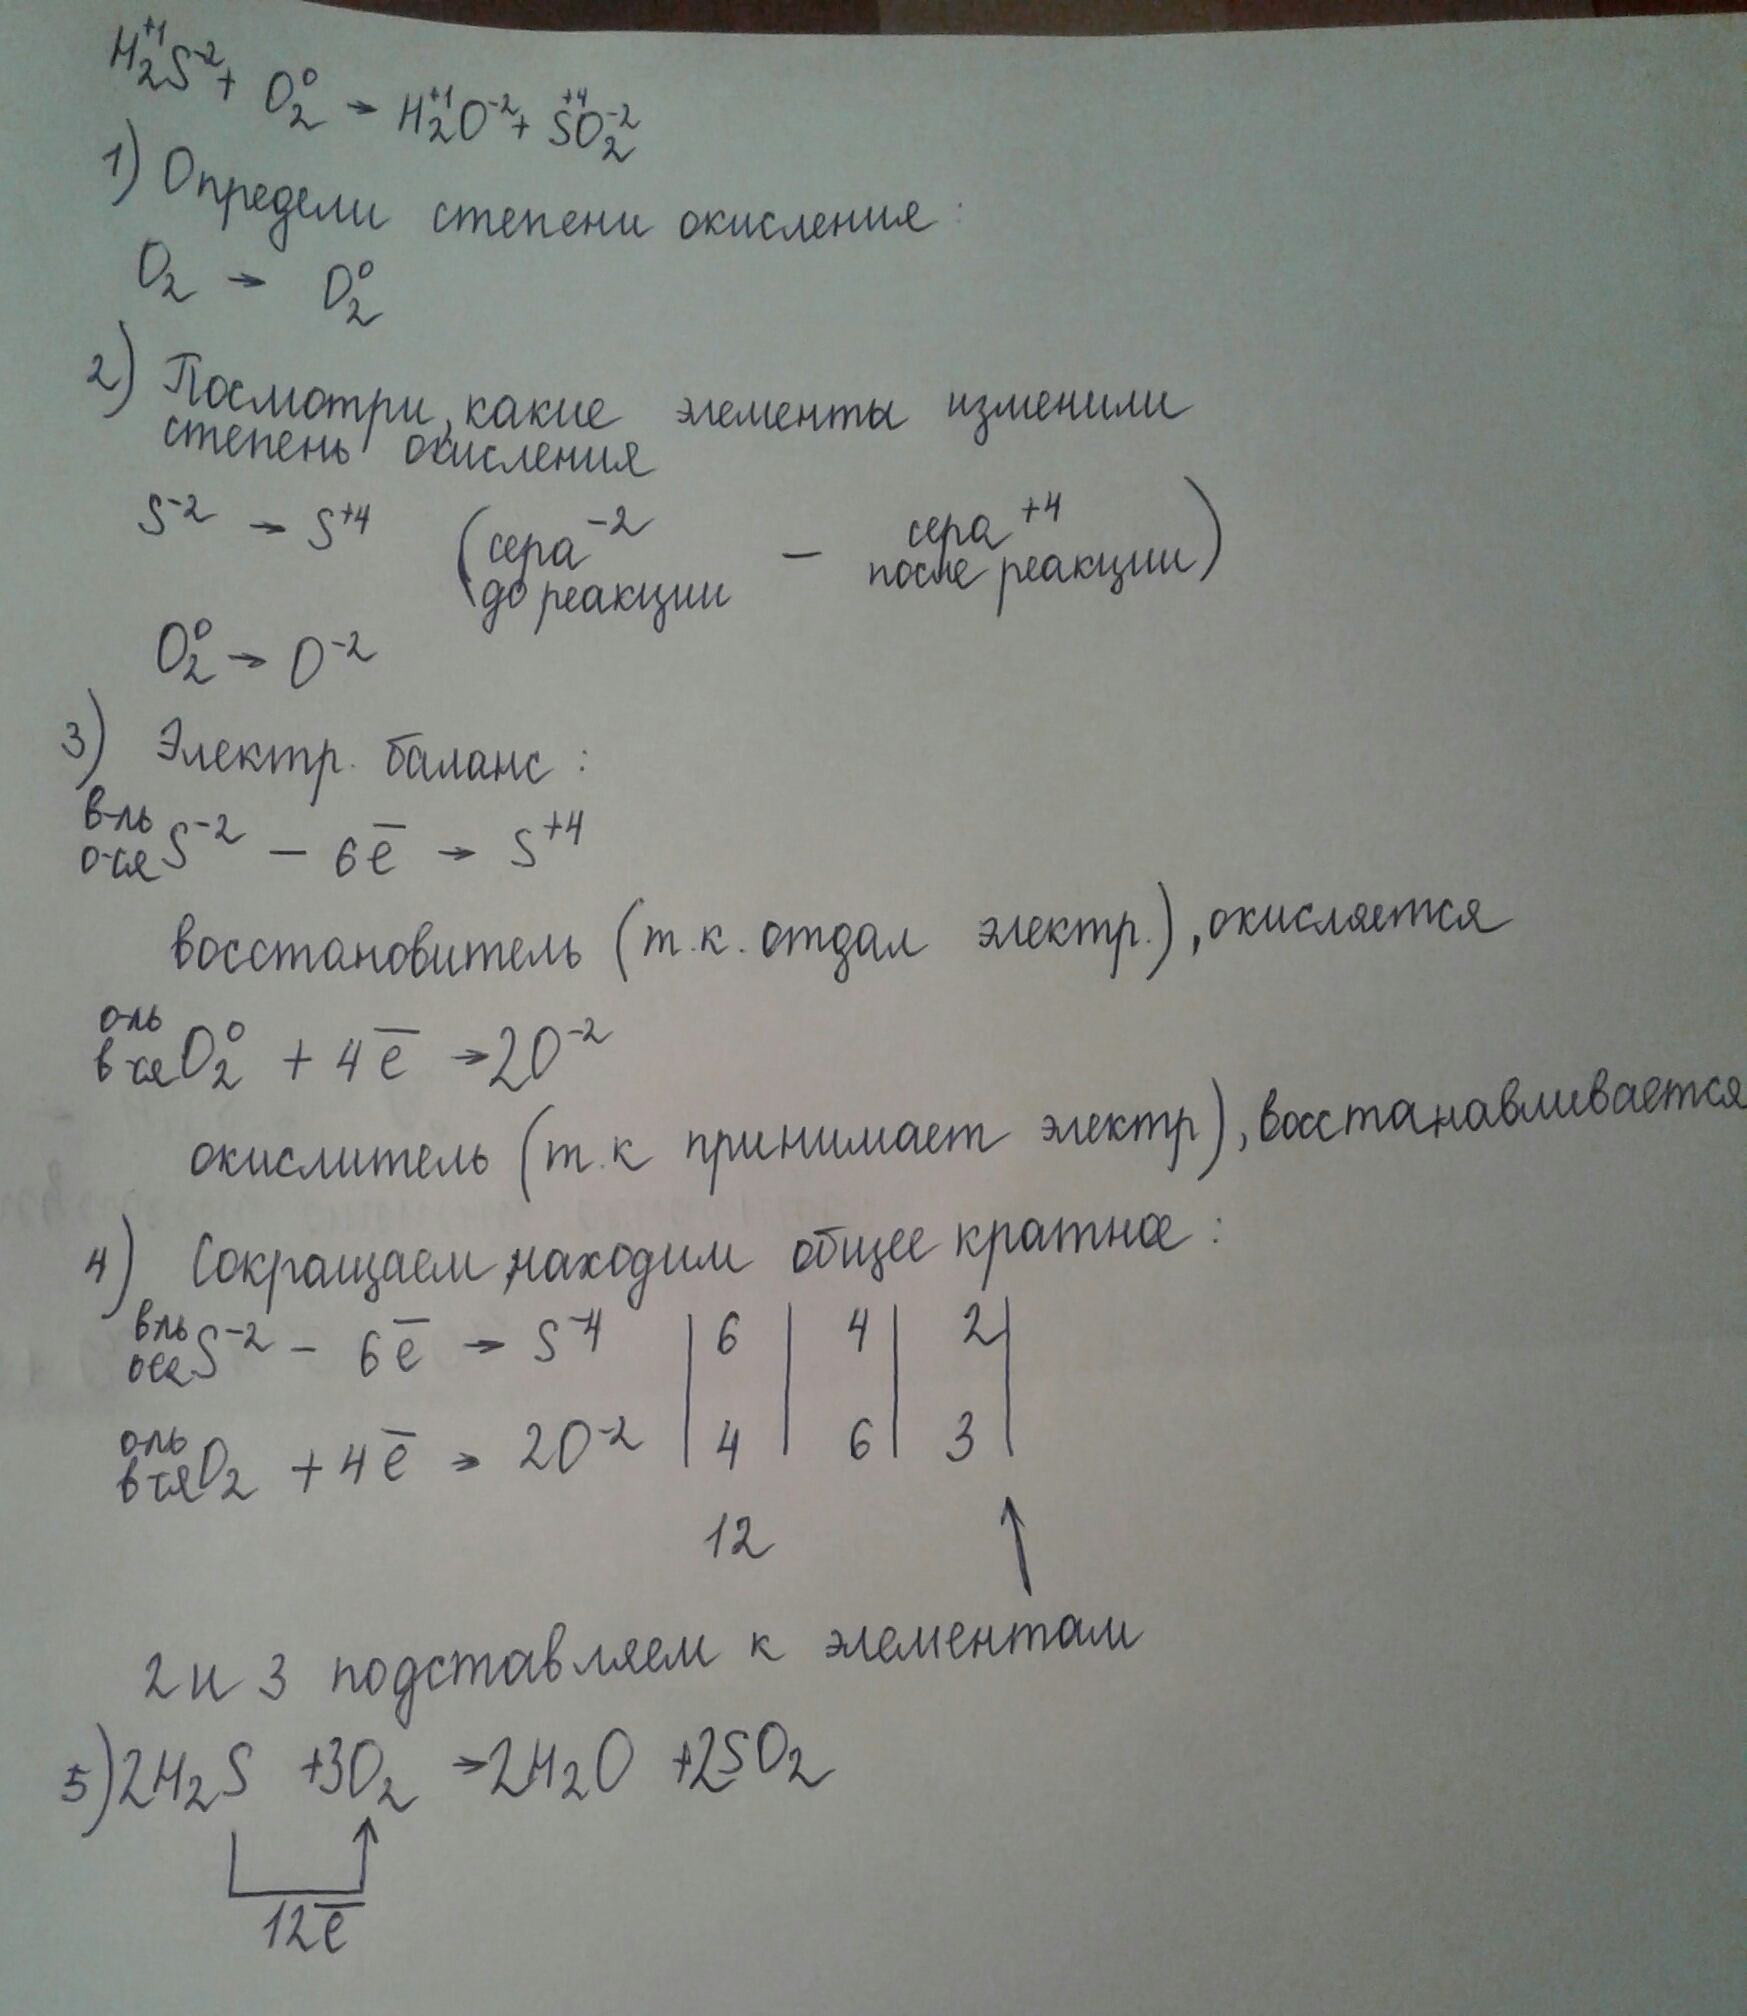 H₂⁺¹S⁻² + O₂⁰ → H₂⁺¹O⁻² + S⁺⁴O₂⁻²
1) Определи степени окисления:
O₂ → O₂⁰
2) Посмотри, какие элементы изменили
степень окисления
S⁻² → S⁺⁴ (сера⁻² – сера⁺⁴
до реакции после реакции)
O₂⁰ → O⁻²
3) Электр. баланс:
в-ль
о-ся S⁻² – 6e̅ → S⁺⁴
восстановитель (т.к. отдал электр.), окисляется
о-ль
в-ся O₂⁰ + 4e̅ → 2O⁻²
окислитель (т.к принимает электр), восстанавливается
4) Сокращаем, находим общее кратное:
в-ль
о-ся S⁻² – 6e̅ → S⁻⁴ | 6 | 4 | 2 |
о-ль
в-ся O₂ + 4e̅ → 2O⁻² | 4 | 6 | 3 |
12
2 и 3 подставляем к элементам
5) 2H₂S + 3O₂ → 2H₂O + 2SO₂
12e̅